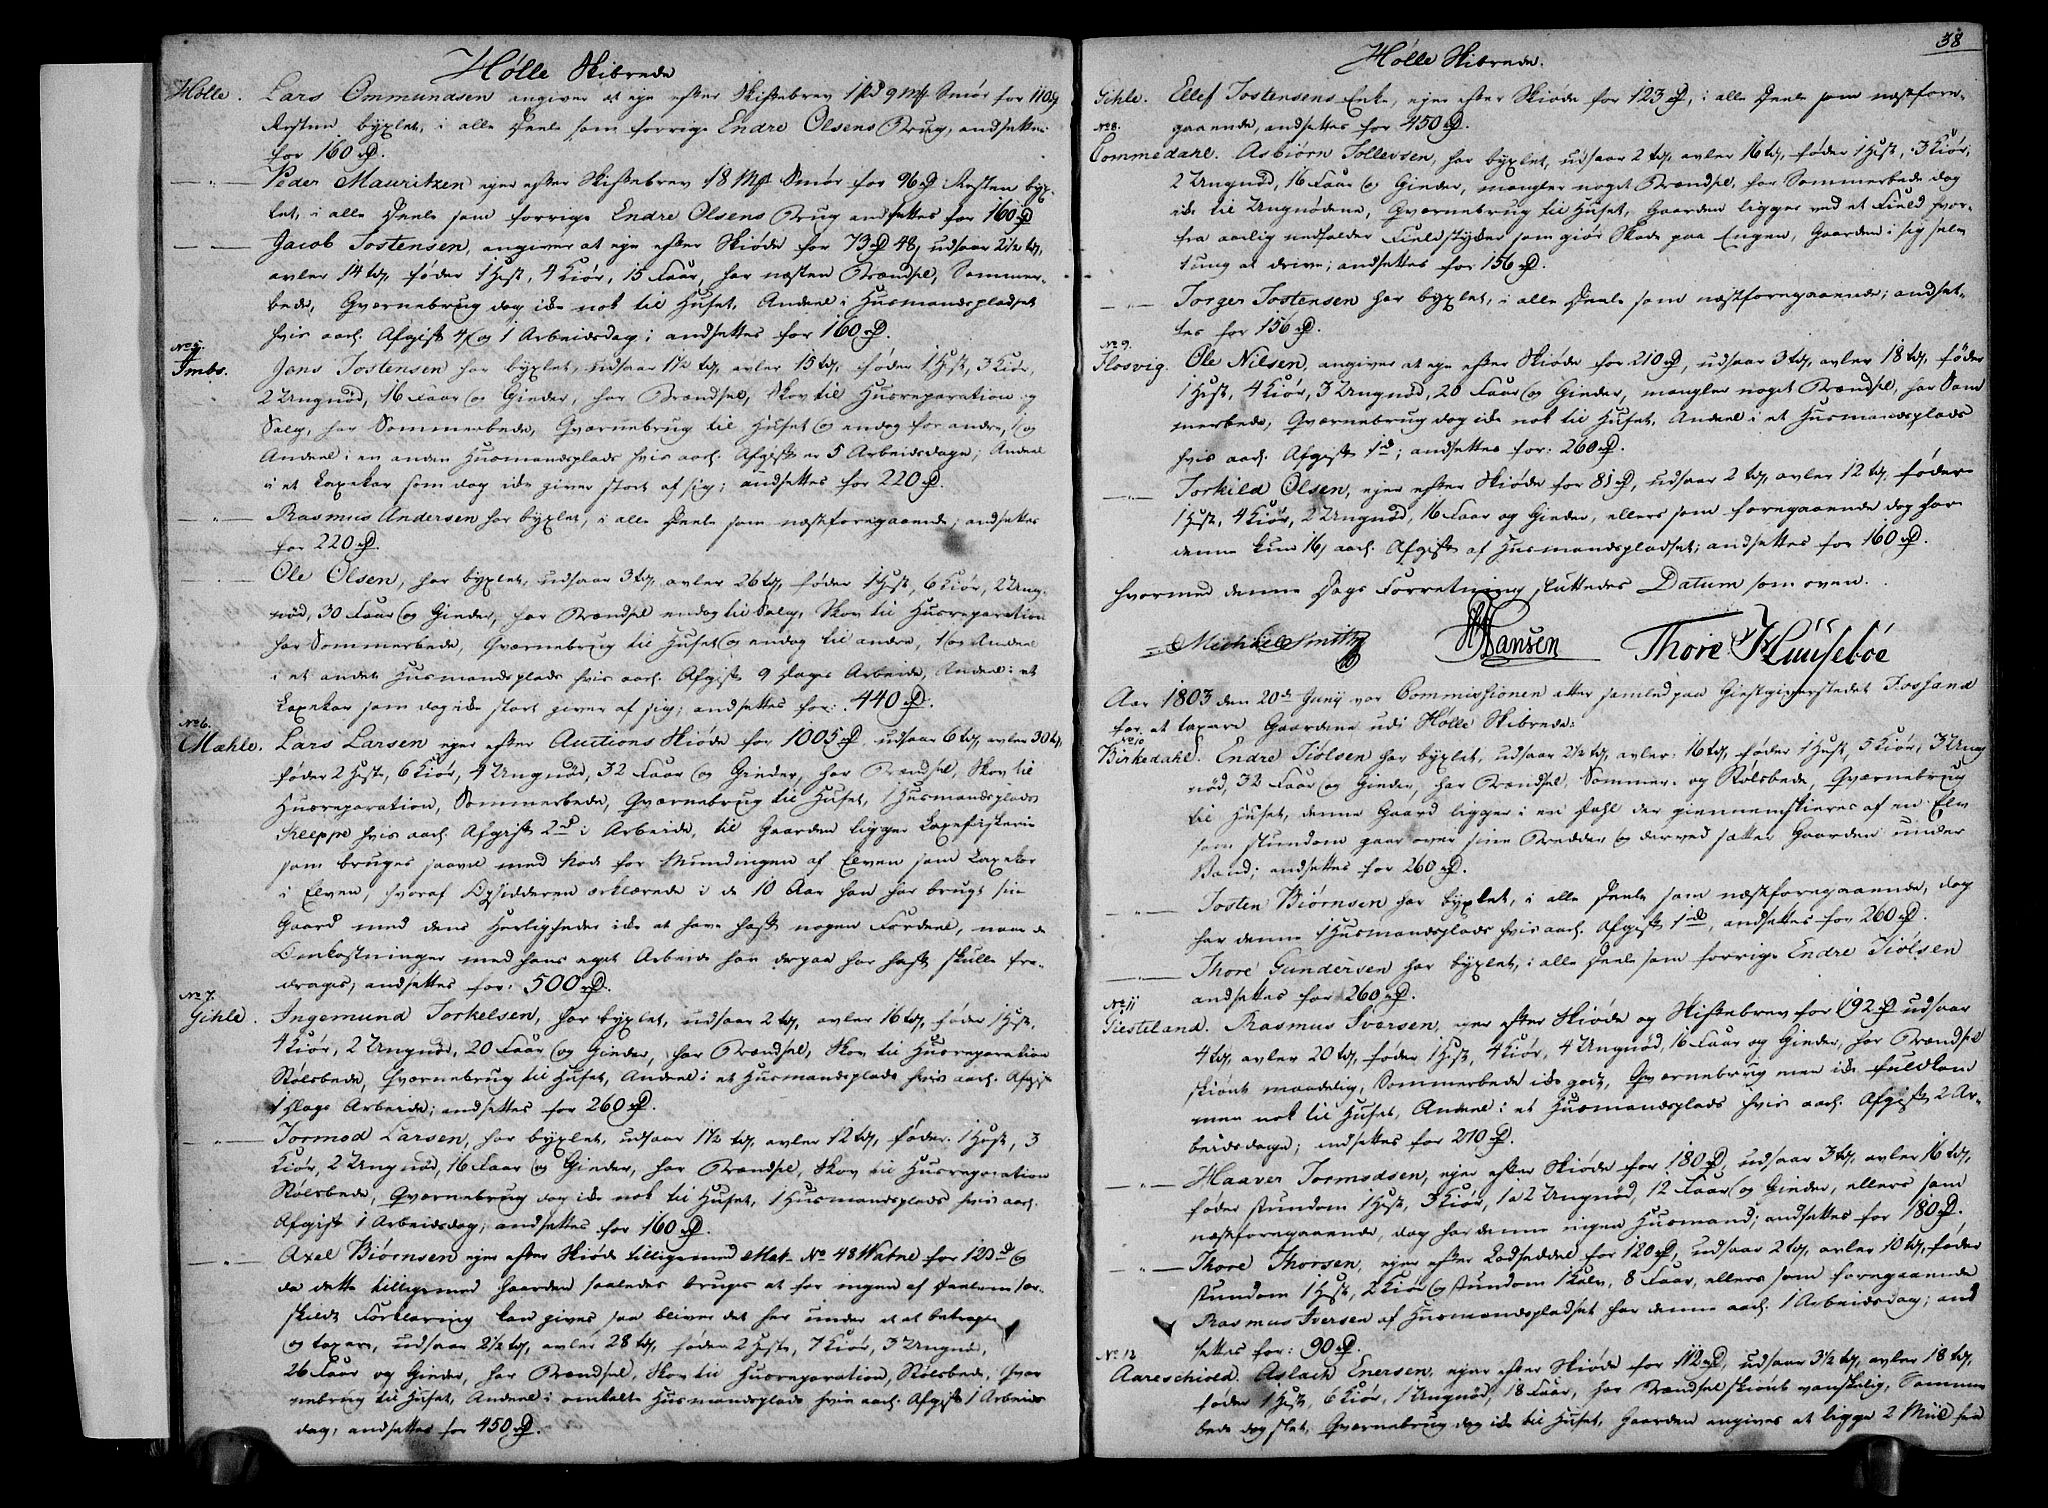 Hølle Skibrede
Hølle. Lars Ommundsen angiver at eje efter Skiftebrev 1 pd 9 Mk Smør for 110
Resten byxlet, i alle Deele som forrige Endre Olsens Brug, andsettes
for 160 rd.
— " — Peder Mauritzen ejer efter Skiftebrev 18 Mk Smør for 96 rd Resten byx-
let, i alle Deele som forrige Endre Olsens Brug andsettes for 160 rd
— — Jacob Tostensen, angiver at eje efter Skiøde for 73 rd 48, udsaar 2½ td,
avler 14 td, føder 1 Hest, 4 Kiør, 15 Faar, har næsten Brændsel, Sommer-
bede, Qværnebrug dog ikke nok til Huset, Andeel i Husmandspladset
hvis aarl. Afgift 4 og 1 Arbeidsdag; andsettes for 160 rd.
No 5.
Imbs. Jens Tostensen har byxlet, udsaar 1½ td, avler 15 td, føder 1 Hest, 3 Kiør,
2 Ungnød, 16 Faar og Gieder, har Brændsel, Skov til Husreparation og
Salg, har Sommerbede, Qværnebrug til Huset og endog for andre, og
Andeel i en anden Husmandsplads hvis aarl. Afgift er 5 Arbeidsdage; Andeel
i et Laxekar som dog ikke giver stort af sig; andsettes for 220 rd.
— " — Rasmus Andersen har byxlet, i alle Deele som næstforegaaende; andsettes
for 220 rd.
— " — Ole Olsen, har byxlet, udsaar 3 td, avler 26 td, føder 1 Hest, 6 Kiør, 2 Ung-
nød, 30 Faar og Gieder, har Brændsel endog til Salg, Skov til Husreparation
har Sommerbede, Qværnebrug til Huset og endog til andre, 1 og Andeel
i et andet Husmandsplads hvis aarl. Afgift 9 Dages Arbeide, Andeel i et
Laxekar som dog ikke stort giver af sig; andsettes for: 440 rd.
No 6.
Mæhle. Lars Larsen ejer efter Auctions Skiøde for 1005 rd, udsaar 6 td, avler 30 td,
føder 2 Heste, 6 Kiør, 4 Ungnød, 32 Faar og Gieder, har Brændsel, Skov til
Husreparation, Sommerbede, Qværnebrug til Huset, 1 Husmandsplads
Kleppe hvis aarl. Afgift 2 rd i Arbeide, til Gaarden ligger Laxefiskerie
som bruges saavel med Nod for Mundingen af Elven som Laxekar
i Elven, hvoraf Opsidderen erklærede i de 10 Aar han har brugt sin
Gaard med dens Herligheder ikke at have haft nogen Fordeel, naar de
Omkostninger med hans eget Arbeide han derpaa har haft skulle fra-
drages; andsettes for: 500 rd.
No 7.
Gihle. Ingemund Torkelsen, har byxlet, udsaar 2 td, avler 16 td, føder 1 Hest,
4 Kiør, 2 Ungnød, 20 Faar og Gieder, har Brændsel, Skov til Husreparation
Stølsbede, Qværnebrug til Huset, Andeel i et Husmandsplads hvis aarl. Afgift
1 Dags Arbeide; andsettes for 260 rd.
— " — Tormod Larsen, har byxlet, udsaar 1½ td, avler 12 td, føder 1 Hest, 3
Kiør, 2 Ungnød, 16 Faar og Gieder, har Brændsel, Skov til Husreparation
Stølsbede, Qværnebrug dog ikke nok til Huset, 1 Husmandsplads hvis aarl.
Afgift 1 Arbeidsdag; andsettes for 160 rd.
— " — Axel Biørnsen ejer efter Skiøde tilligemed Mat. No 48 Watne for 120 rd og
da dette tilligemed Gaarden saaledes bruges at for ingen af Deelene sær-
skildt Forklaring kan gives saa bliver det her under et at betragte
og taxere, udsaar 2½ td, avler 28 td, føder 2 Heste, 7 Kiør, 3 Ungnød,
26 Faar og Gieder, har Brændsel, Skov til Husreparation, Stølsbede, Qvær-
nebrug til Huset, Andeel i omtalte Husmandsplads hvis aarl. Afgift 1 Arbeids
dag; andsettes for 450 rd.
38
Hølle Skibrede.
Gihle. Ellef Tostensens Enke, ejer efter Skiøde for 123 rd, i alle Deele som næstfore-
gaaende, andsettes for 450 rd.
No 8.
Commedahl. Asbiørn Tollevsen, har byxlet, udsaar 2 td, avler 16 td, føder 1 Hest, 3 Kiør,
2 Ungnød, 16 Faar og Gieder, mangler noget Brændsel, har Sommerbede dog
ikke til Ungnødene, Qværnebrug til Huset, Gaarden ligger ved et Field hvor-
fra aarlig nedfalder Fieldstykker som giør Skade paa Engen, Gaarden i sig selv
tung at drive; andsettes for 156 rd.
— " — Torger Tostensen har byxlet, i alle Deele som næstforegaaende; andset-
tes for 156 rd.
No 9.
Flosvig. Ole Nilsen, angiver at eje efter Skiøde for 210 rd, udsaar 3 td, avler 18 td, føder
1 Hest, 4 Kiør, 3 Ungnød, 20 Faar og Gieder, mangler noget Brændsel, har Som
merbede, Qværnebrug dog ikke nok til Huset, Andeel i et Husmandsplads
hvis aarl. Afgift 1 rd; andsettes for: 260 rd.
— " — Torkild Olsen, ejer efter Skiøde for 81 rd, udsaar 2 td, avler 12 td, føder
1 Hest, 4 Kiør, 2 Ungnød, 16 Faar og Gieder, ellers som foregaaende dog har
denne kun 16 aarl. Afgift af Husmandspladset; andsettes for 160 rd.
Hvormed denne Dags Forretning sluttedes Datum som oven.
Michael Smith Hansen Thore Huusebøe
Aar 1803 den 20de Junÿ var Commissionen atter samled paa Giestgiverstedet Fossand
for at taxere Gaardene udi Hølle Skibrede:
No 10
Birkedahl. Endre Tiølsen har byxlet, udsaar 2½ td, avler 16 td, føder 1 Hest, 5 Kiør, 3 Ung
nød, 32 Faar og Gieder, har Brændsel, Sommer- og Stølsbede, Qværnebrug
til Huset, denne Gaard ligger i en Dahl der giennemskieres af en Elv
som stundom gaar over sine Bredder og derved sætter Gaarden under
Vand; andsettes for 260 rd.
— " — Tosten Biørnsen har byxlet, i alle Deele som næstforegaaende, dog
har denne 1 Husmandsplads hvis aarl. Afgift 1 rd, andsettes for 260 rd.
— " — Thore Gundersen har byxlet, i alle Deele som forrige Endre Tiølsen
andsettes for 260 rd.
No 11
Giesteland. Rasmus Iversen, ejer efter Skiøde og Skiftebrev for 192 rd udsaar
4 td, avler 20 td, føder 1 Hest, 4 Kiør, 4 Ungnød, 16 Faar og Gieder, har Brændsel
skiønt maadelig, Sommerbede ikke godt, Qværnebrug men ikke fuldkom
men nok til Huset, Andeel i et Husmandsplads hvis aarl. Afgift 2 Ar-
beidsdage; andsettes for 210 rd.
— " — Haaver Tormodsen, ejer efter Skiøde for 180 rd, udsaar 3 td, avler 16 td,
føder stundom 1 Hest, 3 Kiør, 1 a 2 Ungnød, 12 Faar og Gieder, ellers som
næstforegaaende, dog har denne ingen Husmand; andsettes for 180 rd.
— " — Thore Thorsen, ejer efter Lodseddel for 120 rd, udsaar 2 td, avler 10 td, føder
stundom 1 Hest, 2 Kiør og stundom 1 Kalv, 8 Faar, ellers som foregaaende
Rasmus Iversen af Husmandspladset har denne aarl. 1 Arbeidsdag; and
settes for: 90 rd.
No 12
Aareschiold. Aslach Enersen, ejer efter Skiøde for 112 rd, udsaar 3½ td, avler 18 td,
føder 1 Hest, 6 Kiør, 1 Ungnød, 18 Faar, har Brændsel skiønt vanskelig, Sommer
bede dog slet, Qværnebrug dog ikke til Huset, Gaarden angives at ligge 2 Miil fra